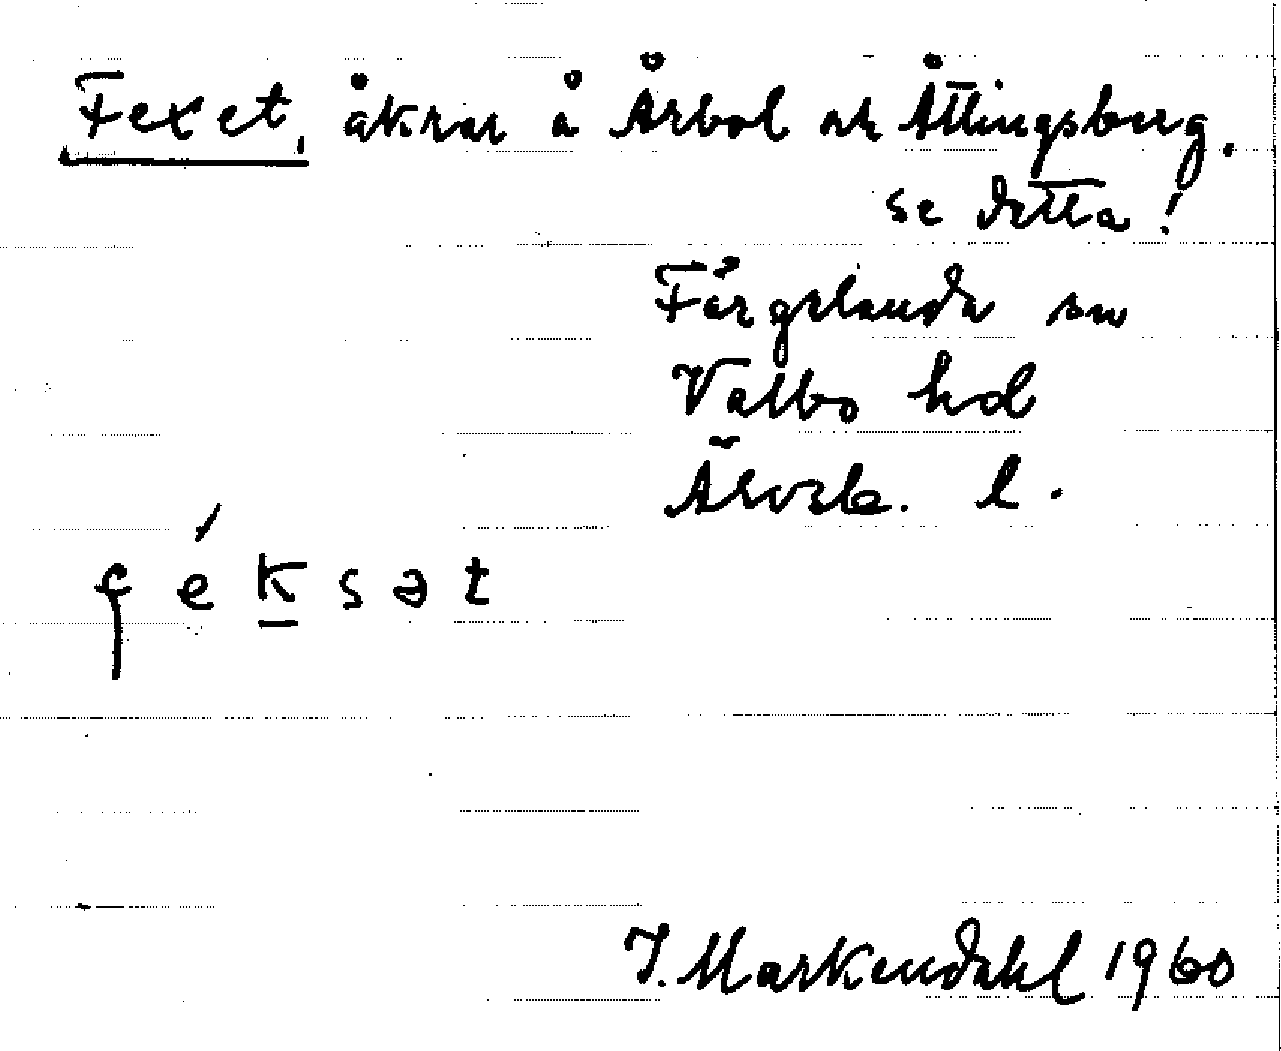 Fexet, åkrar å Årbol och Åttingsberg.
se detta!
Färgelanda sn
Valbo hd
Älvsb. l.
féksət
J. Markendahl 1960